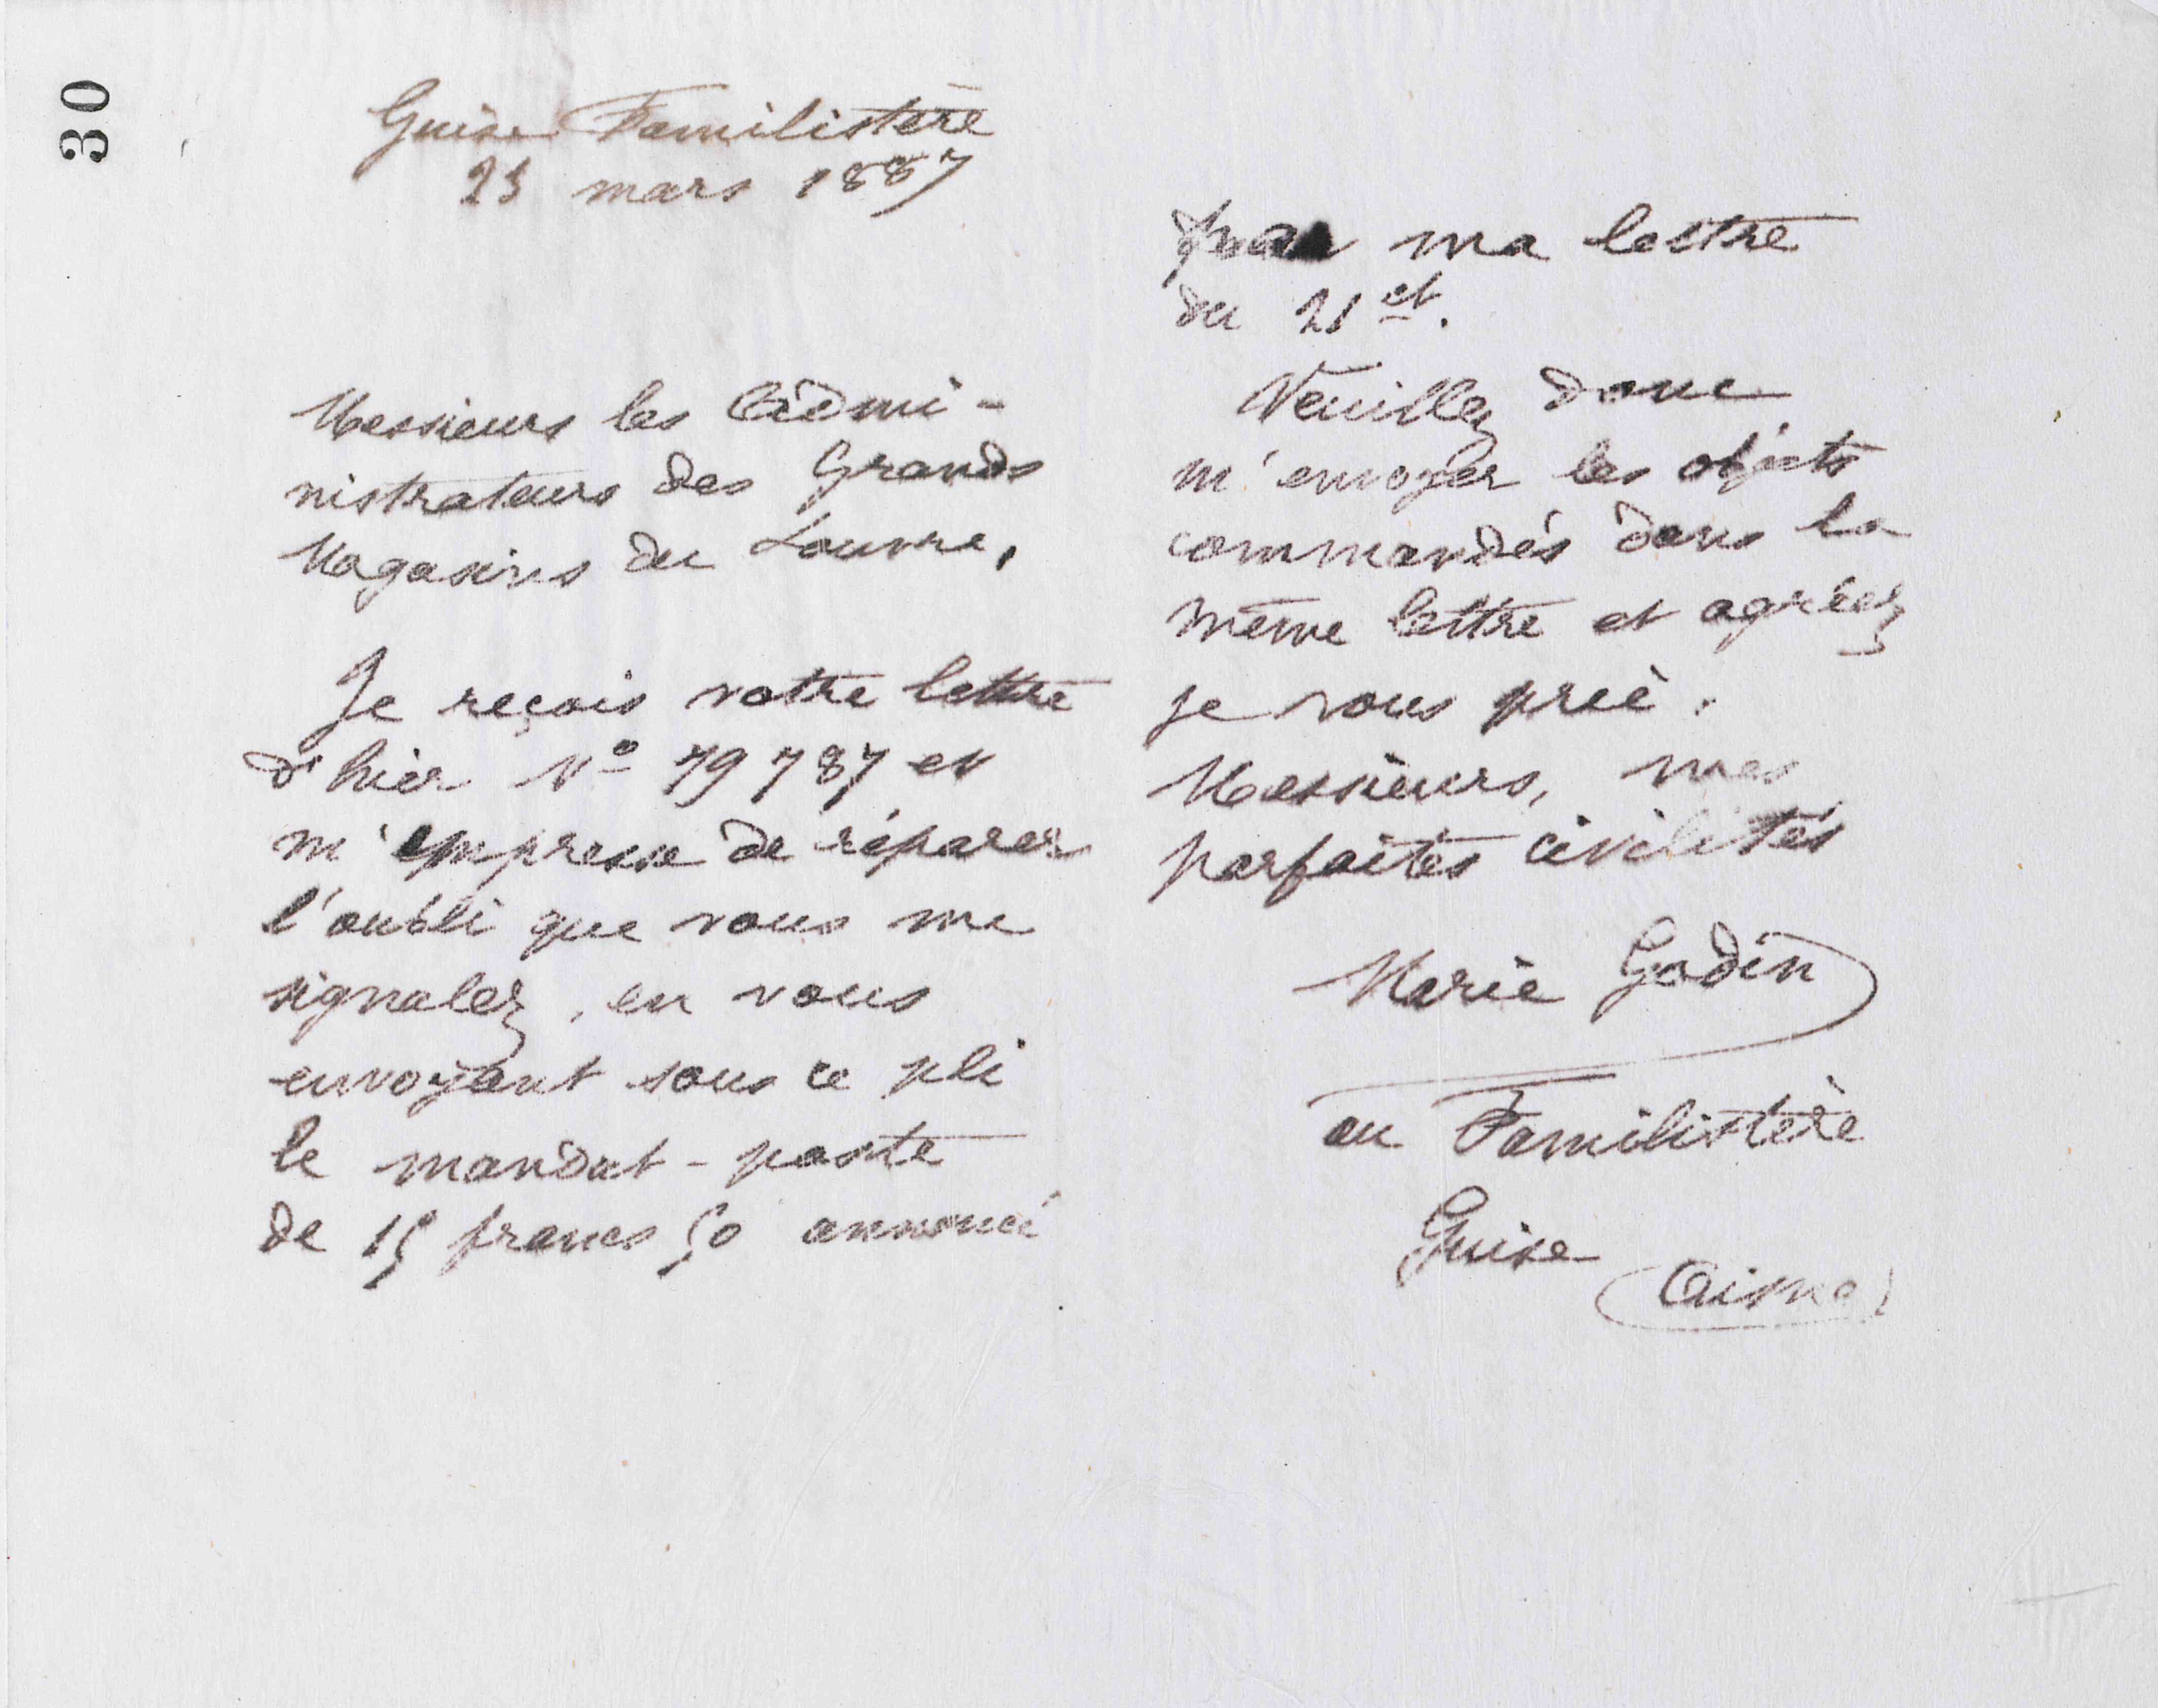 30
Guise Familistère
23 mars 1887
Messieurs les Admi-
nistrateurs des Grands
Magasins du Louvre,
Je reçois votre lettre
d'hier N° 79787 et
m'empresse de réparer
l'oubli que vous me
signalez, en vous
envoyant sous ce pli
le mandat-poste
de 15 francs 50 annoncé
par ma lettre
du 21 ct.
Veuillez donc
m'envoyer les objets
commandés dans la
même lettre et agréez
je vous prie,
Messieurs, mes
parfaites civilités
Marie Godin
au Familistère
Guise
(Aisne)